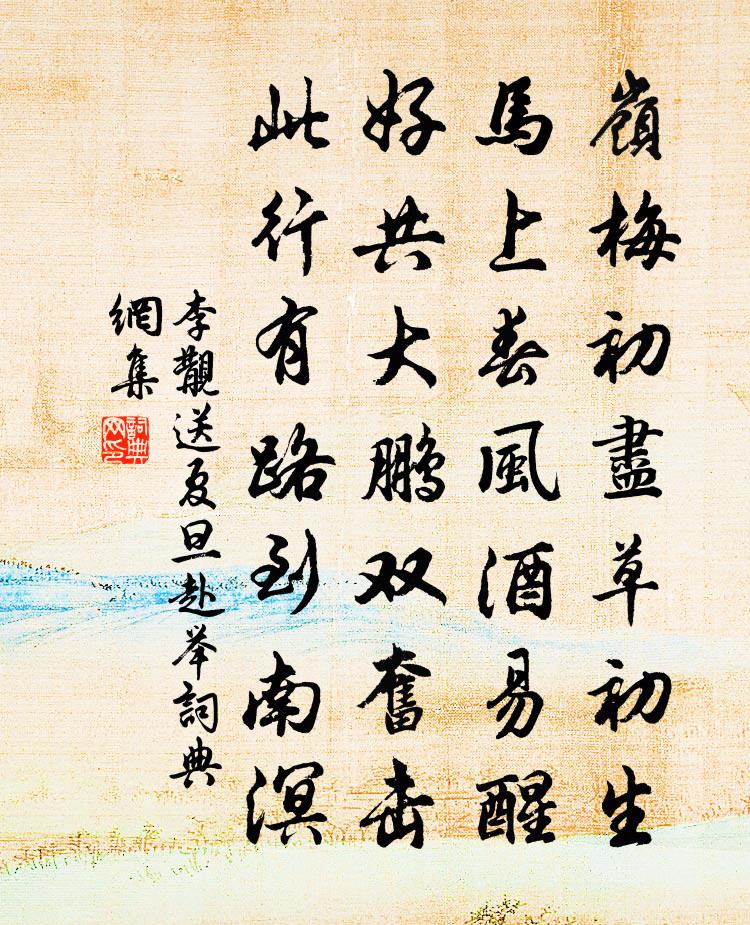 嶺梅初盡草初生
馬上春風酒易醒
好共大鵬双奮击
此行有路到南溟
李觀送夏旦赴举詞典
網集
詞典
网印